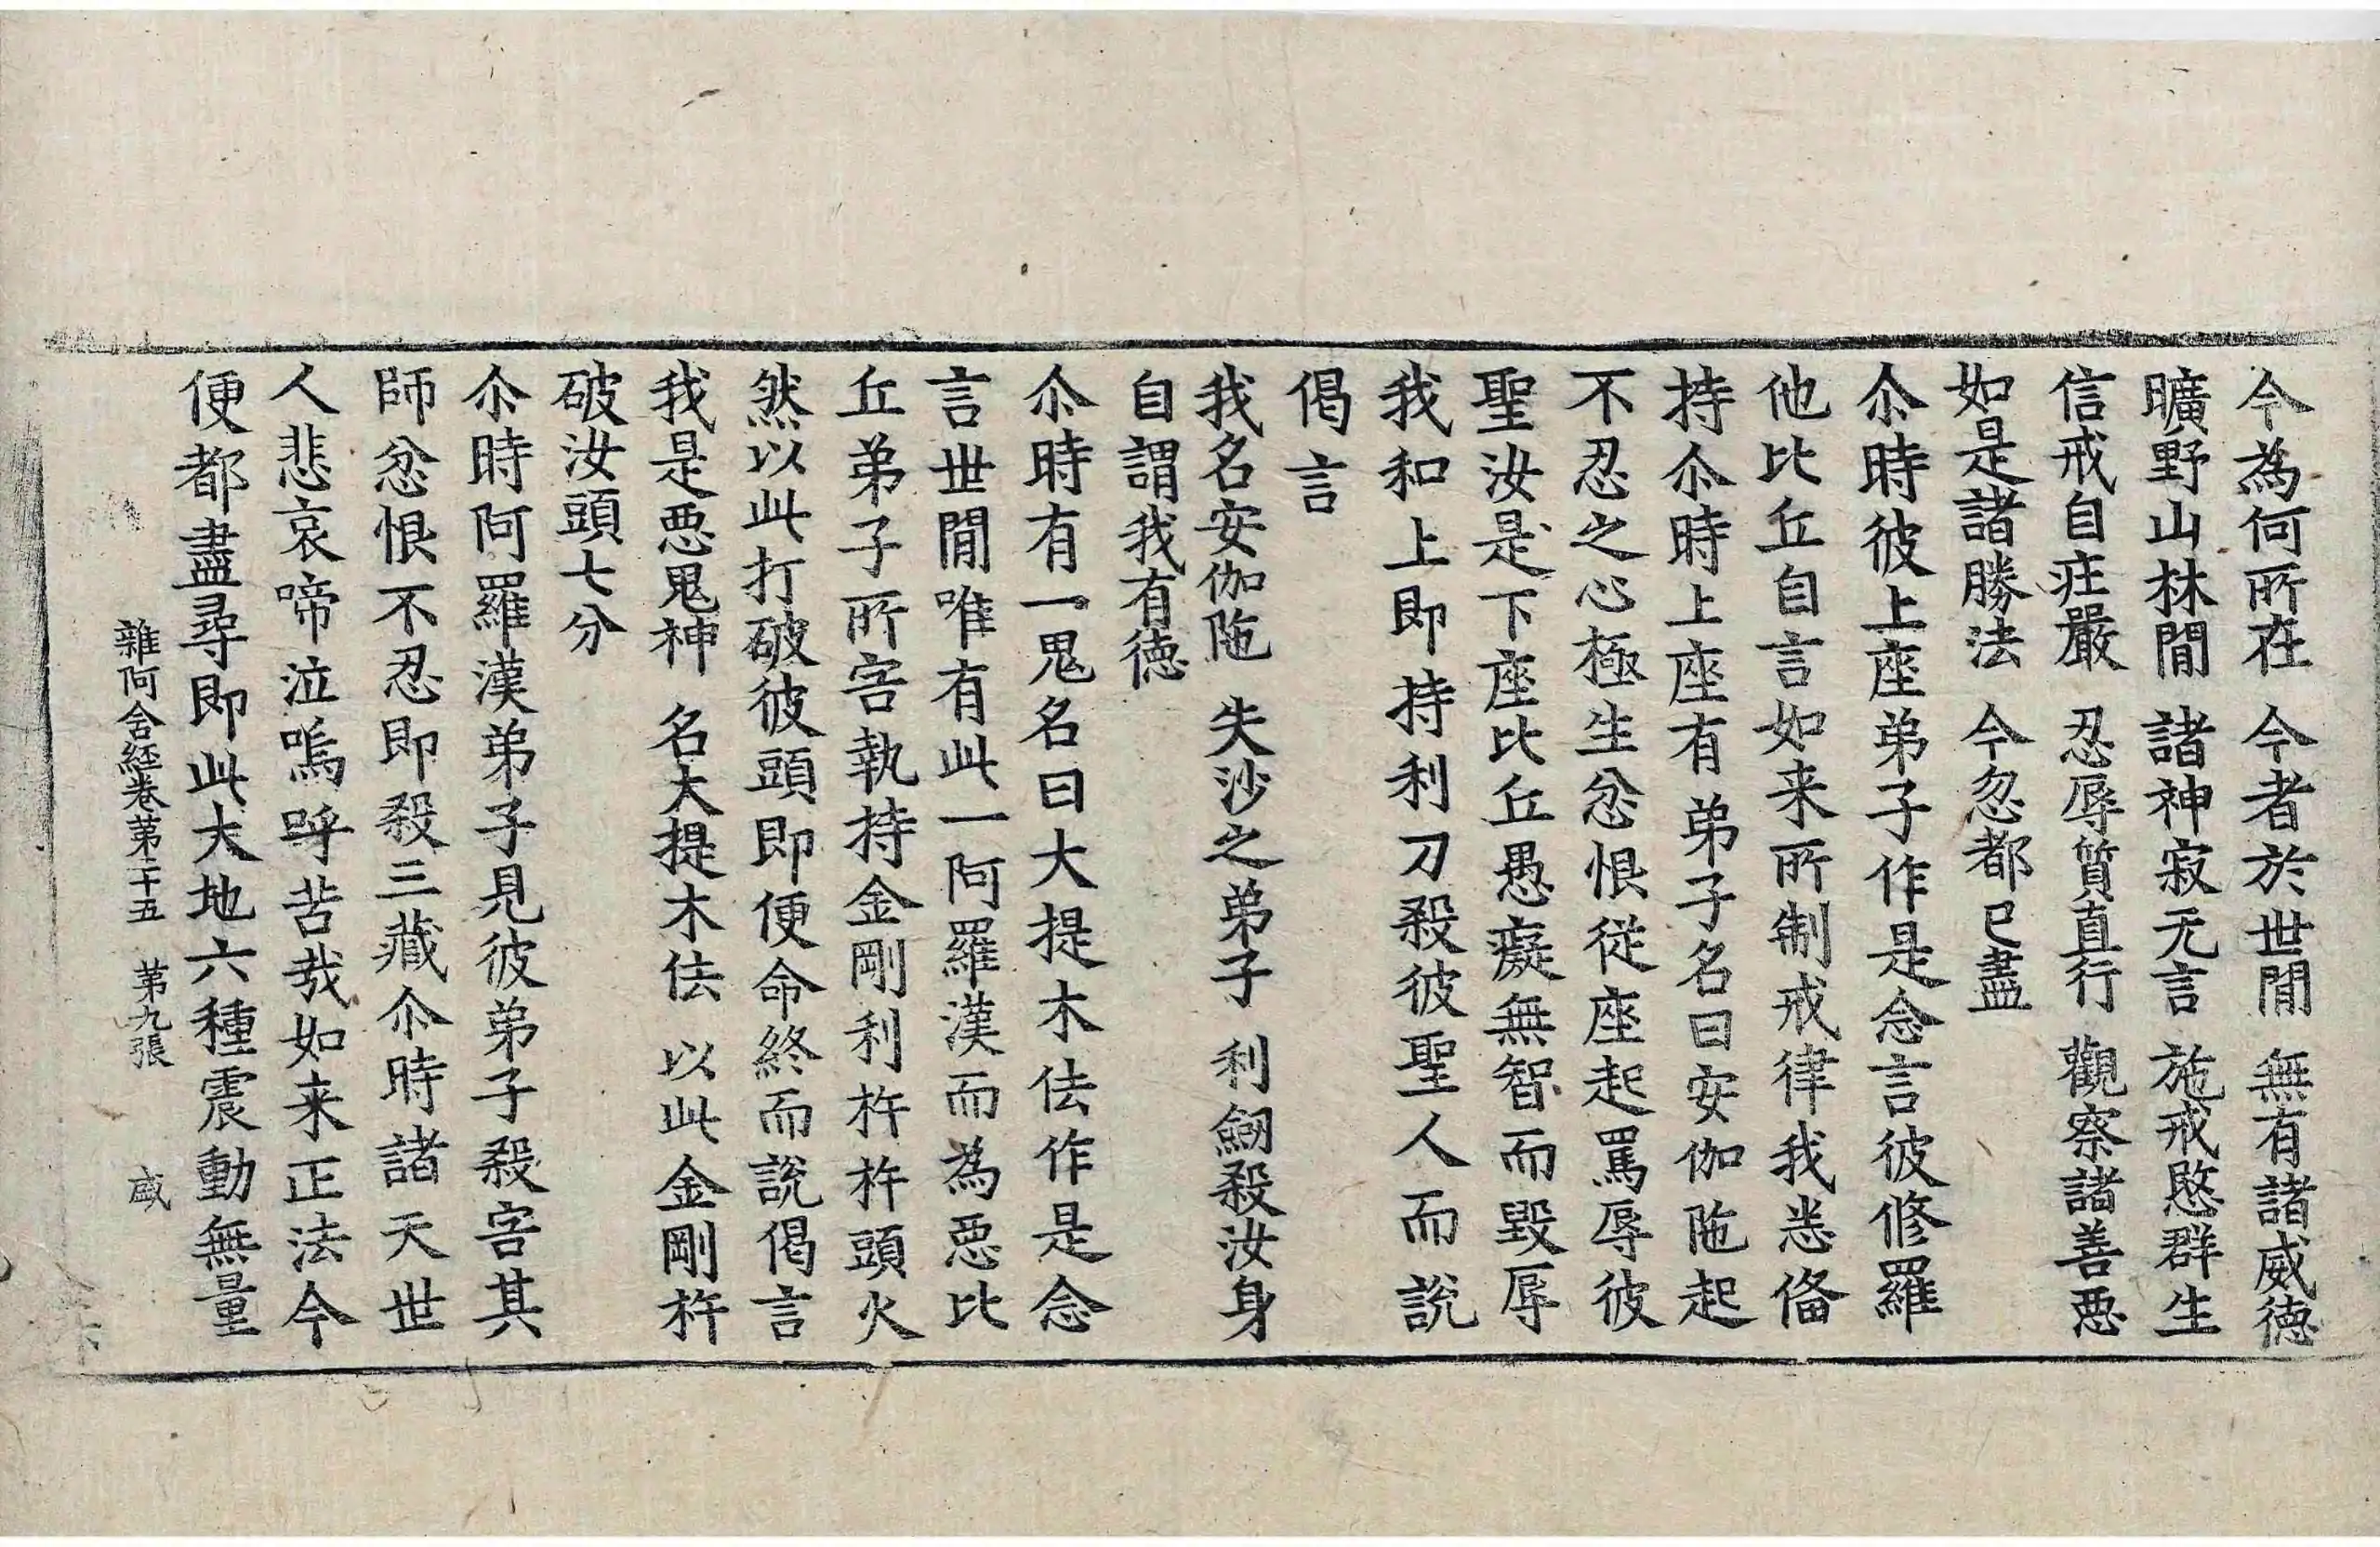 今為何所在　今者於世間　無有諸威德
曠野山林間　諸神寂无言　施戒愍群生
信戒自疘嚴　忍辱質直行　觀察諸善惡
如是諸勝法　今忽都已盡
尒時彼上座弟子作是念言彼修羅
他比丘自言如来所制戒律我悉俻
持尒時上座有弟子名曰安伽陁起
不忍之心極生忿恨従座起罵辱彼
聖汝是下座比丘愚癡無智而毀辱
我和上即持利刀殺彼聖人而說
偈言
我名安伽陁　失沙之弟子　利劒殺汝身
自謂我有德
尒時有一鬼名曰大提木佉作是念
言世間唯有此一阿羅漢而為惡比
丘弟子所害執持金剛利杵杵頭火
然以此打破彼頭即便命終而說偈言
我是惡鬼神　名大提木佉　以此金剛杵
破汝頭七分
尒時阿羅漢弟子見彼弟子殺害其
師忿恨不忍即殺三藏尒時諸天世
人悲哀啼泣嗚呼苦哉如来正法今
便都盡尋即此大地六種震動無量
雜阿含經卷苐二十五　苐九張　盛